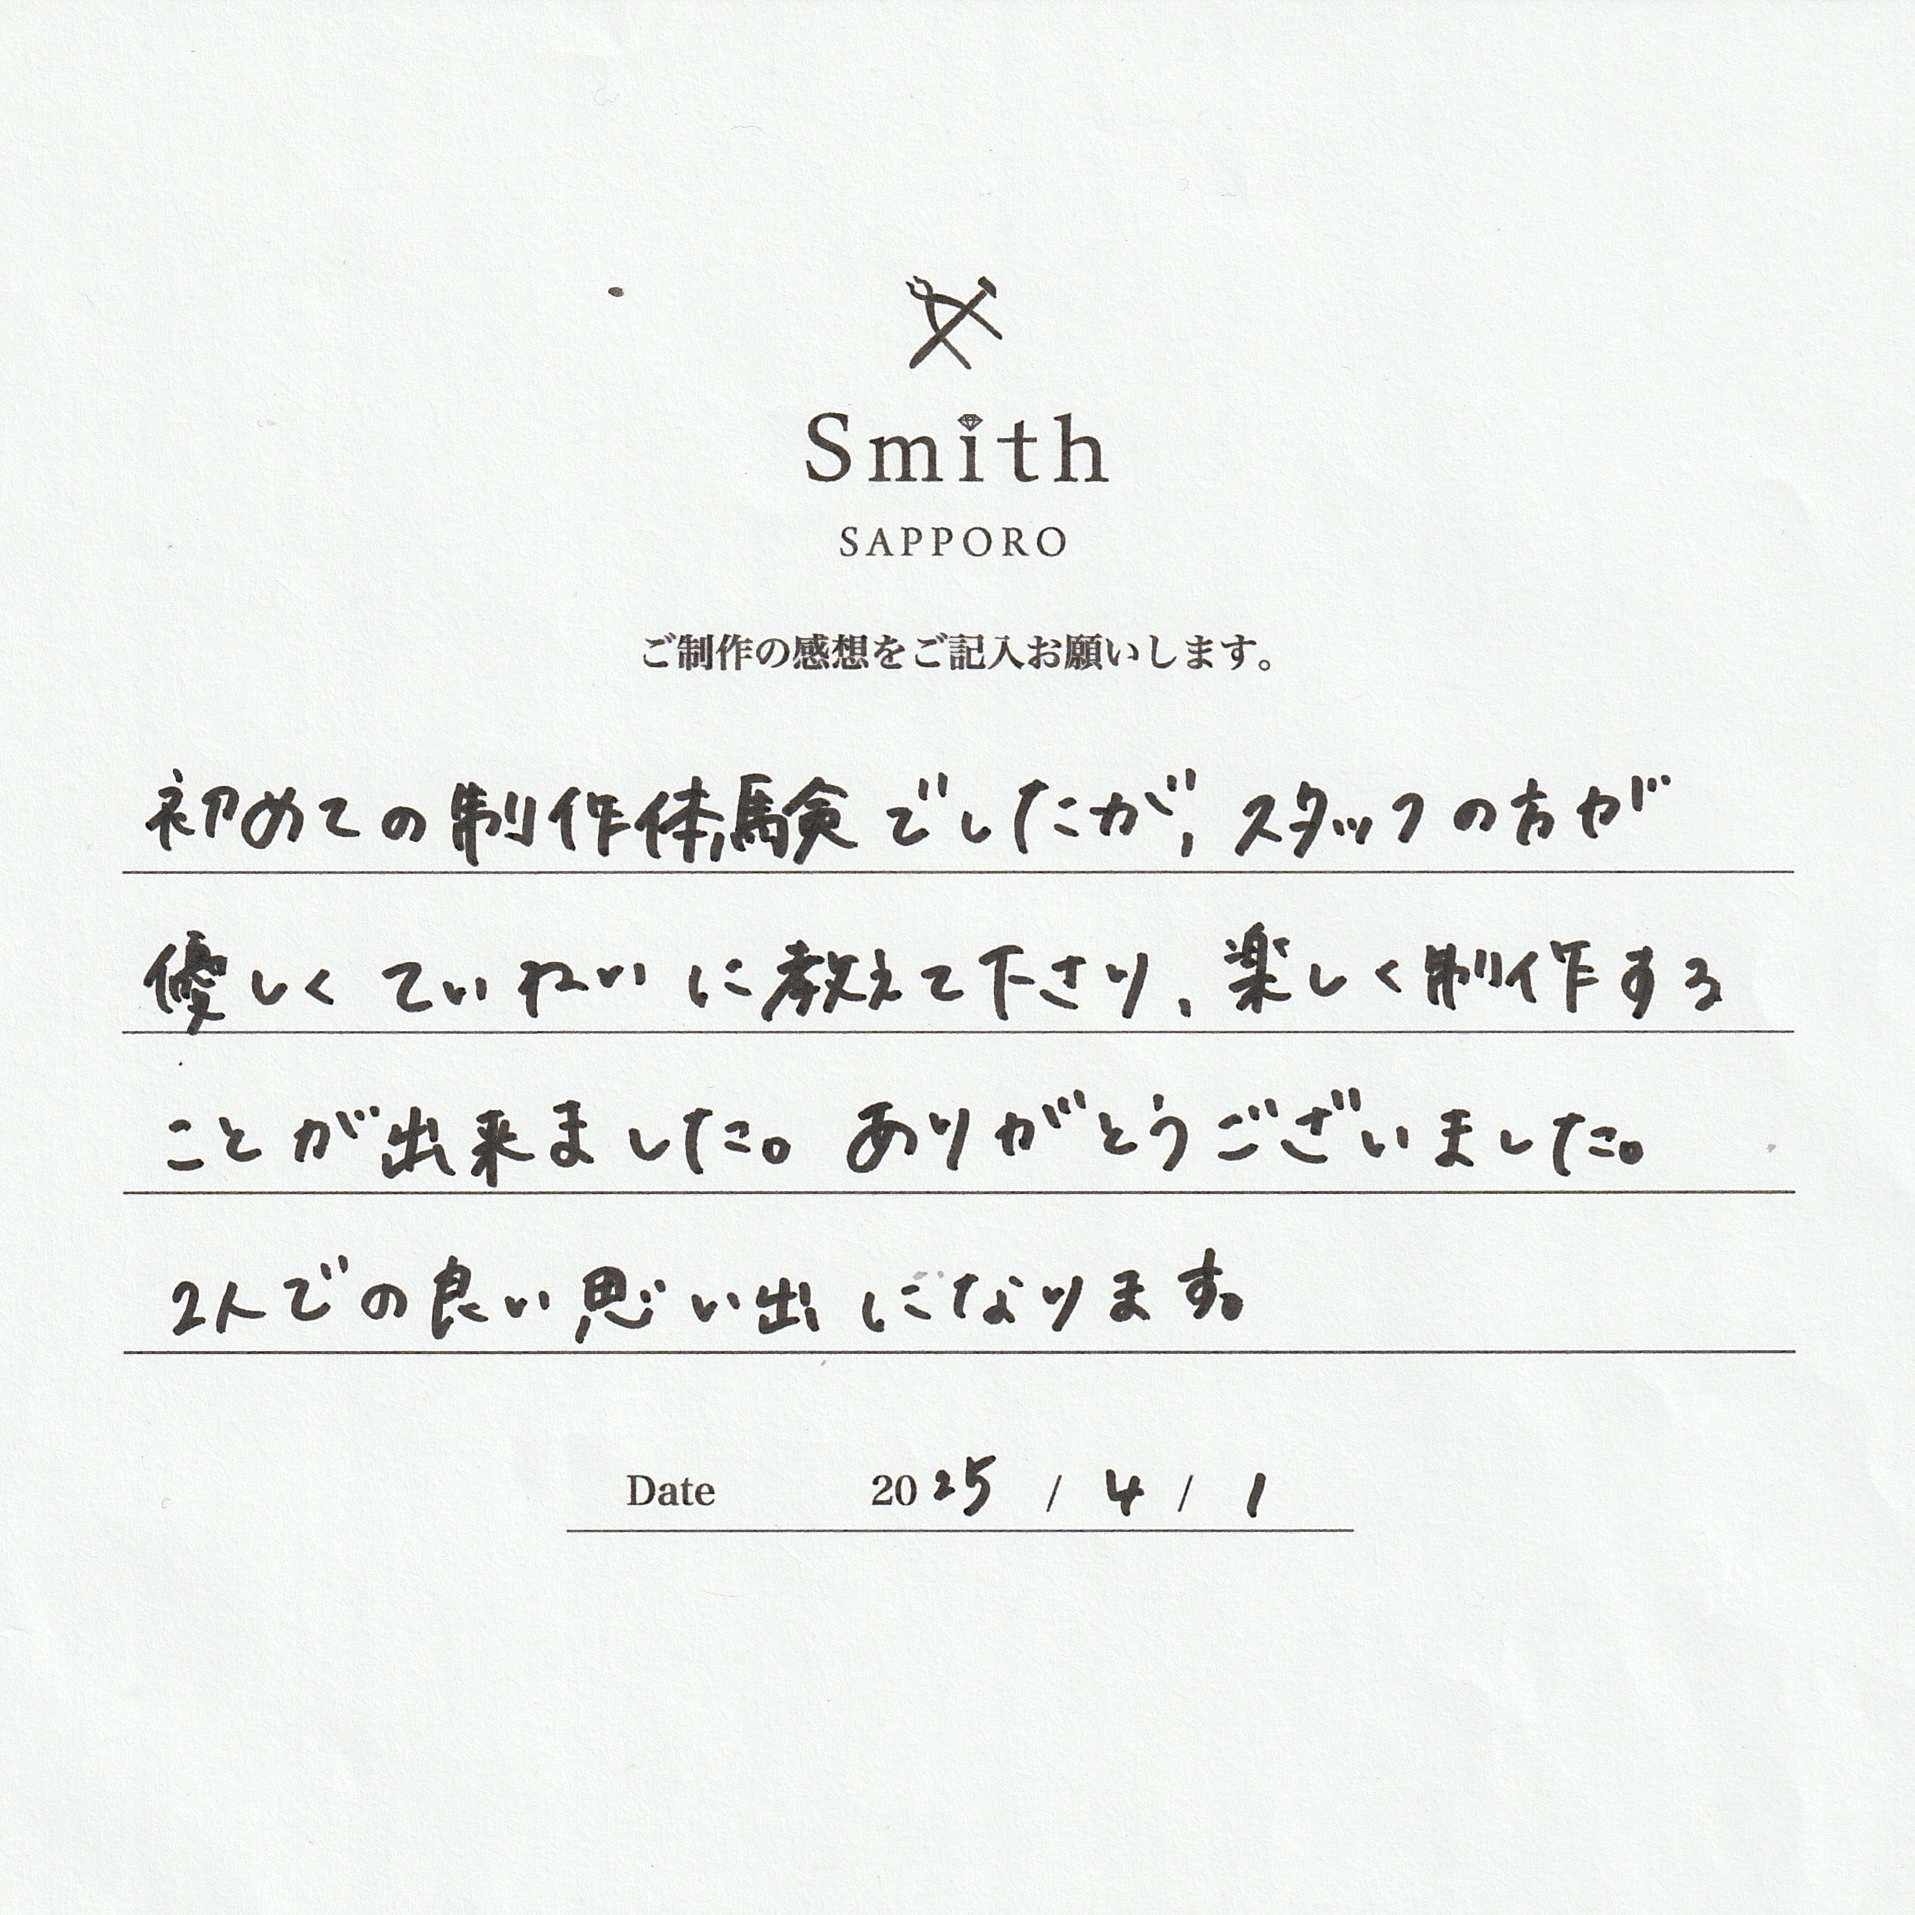 Smith
SAPPORO
ご制作の感想をご記入お願いします。
初めての制作体験でしたが、スタッフの方が
優しくていねいに教えて下さり、楽しく制作する
ことが出来ました。ありがとうございました。
2人での良い思い出になります。
Date 2025 / 4 / 1